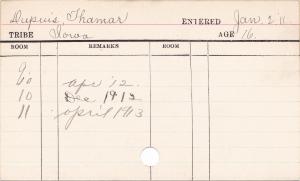 Dupuis, Thamar ENTERED Jan. 2 11
TRIBE Iowa AGE 16.
ROOM REMARKS ROOM
9
10 apr '12.
10 Dec 1912
11 april 1913